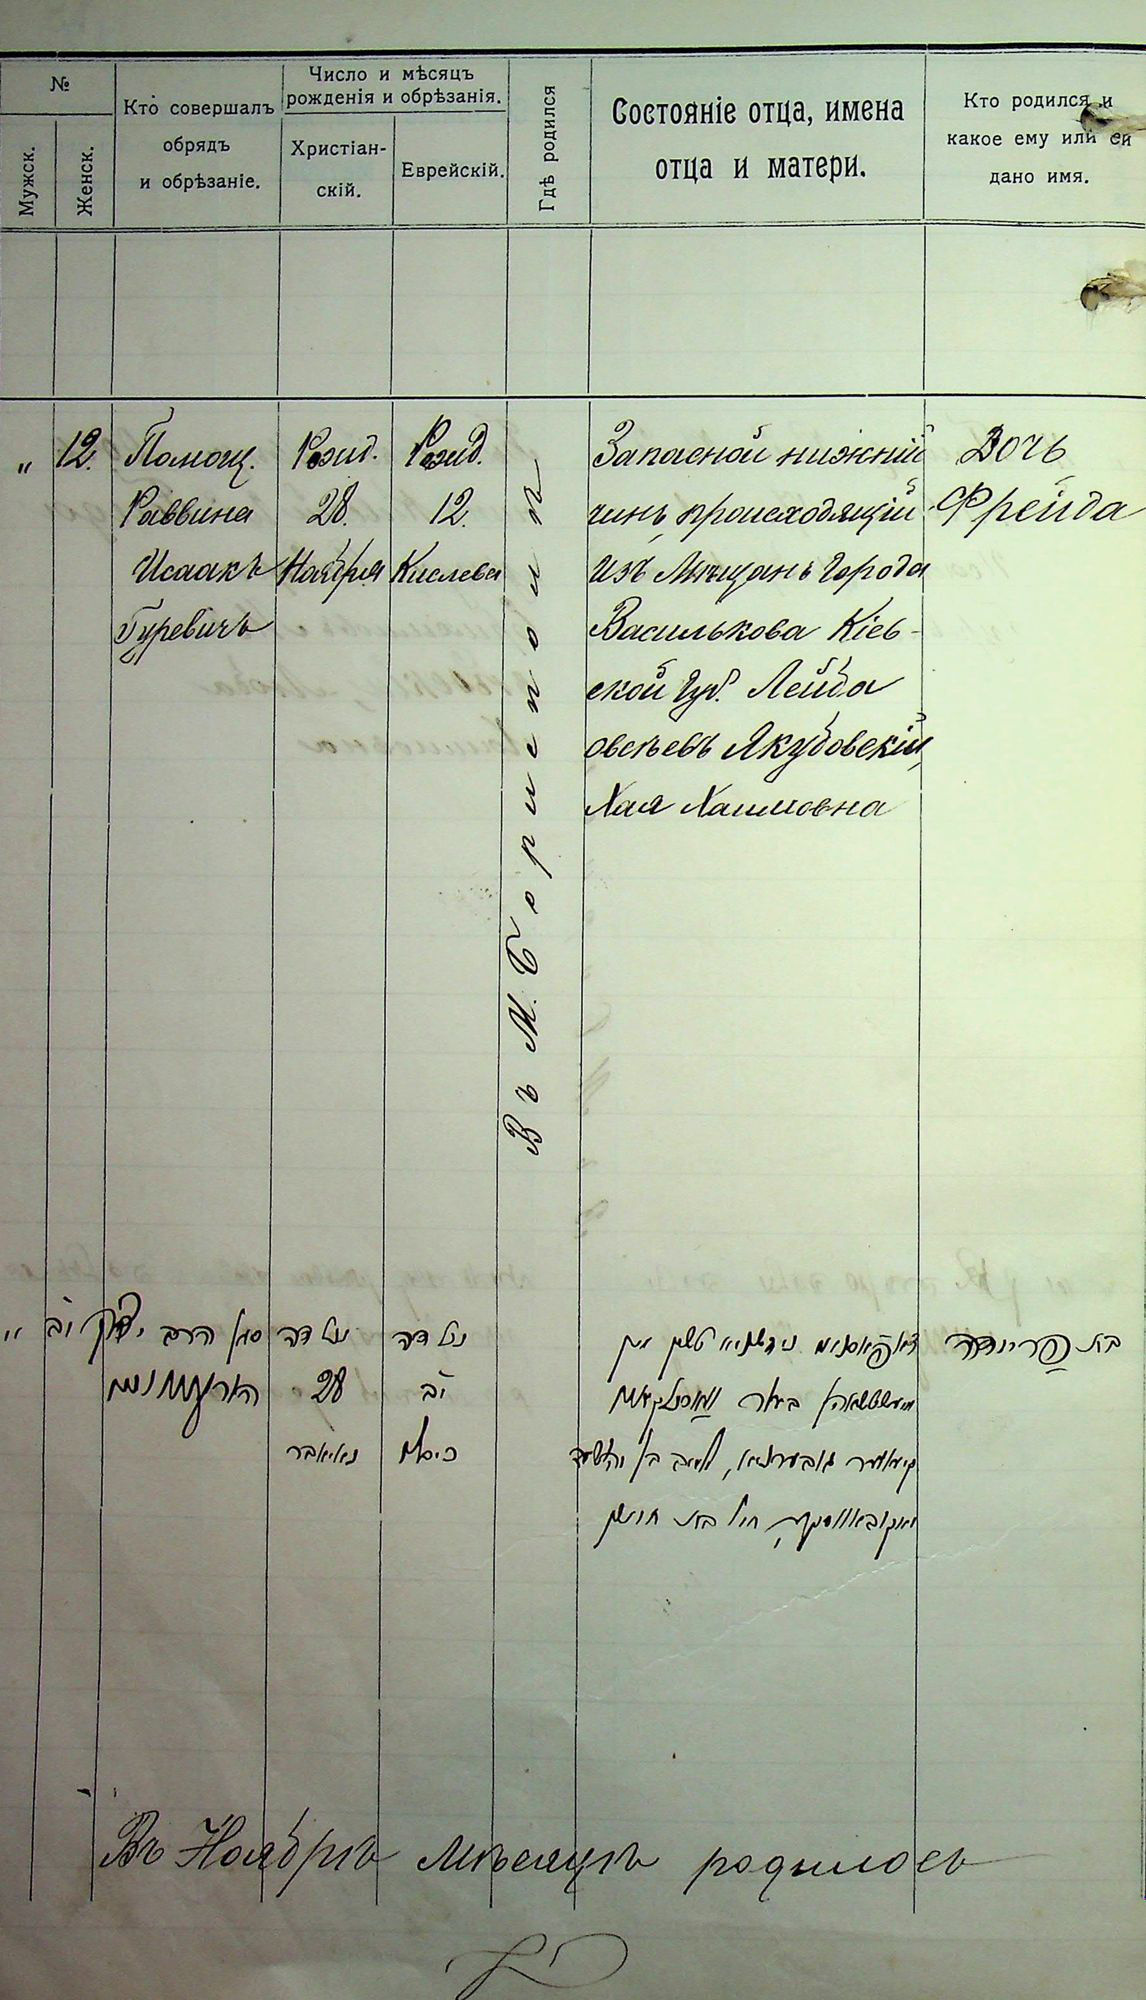 №
Мужск.
Женск.
Кто совершалъ
обрядъ
и обрѣзаніе.
Число и мѣсяцъ
рожденія и обрѣзанія.
Христіан-
скій.
Еврейскій.
Гдѣ родился
Состояніе отца, имена
отца и матери.
Кто родился и
какое ему или ей
дано имя.
„
12.
Помощ.
Раввина
Исаакъ
Гуревичъ
Рожд.
28.
Ноября
Рожд.
12.
Кислева
Въ М. Бориспопи
Запасной нижній
чинъ, происходящій
изъ Мѣщанъ города
Василькова Кіев-
ской Губ. Лейба
Якубовскій,
Хая Хаимовна
Дочь
Фрейда
„
יב
סגן הרב יצחק
נולדה
28
נאיאבר
נולדה
יב
כיסלו
בת פריידה
Въ Ноябрѣ мѣсяцѣ родилось